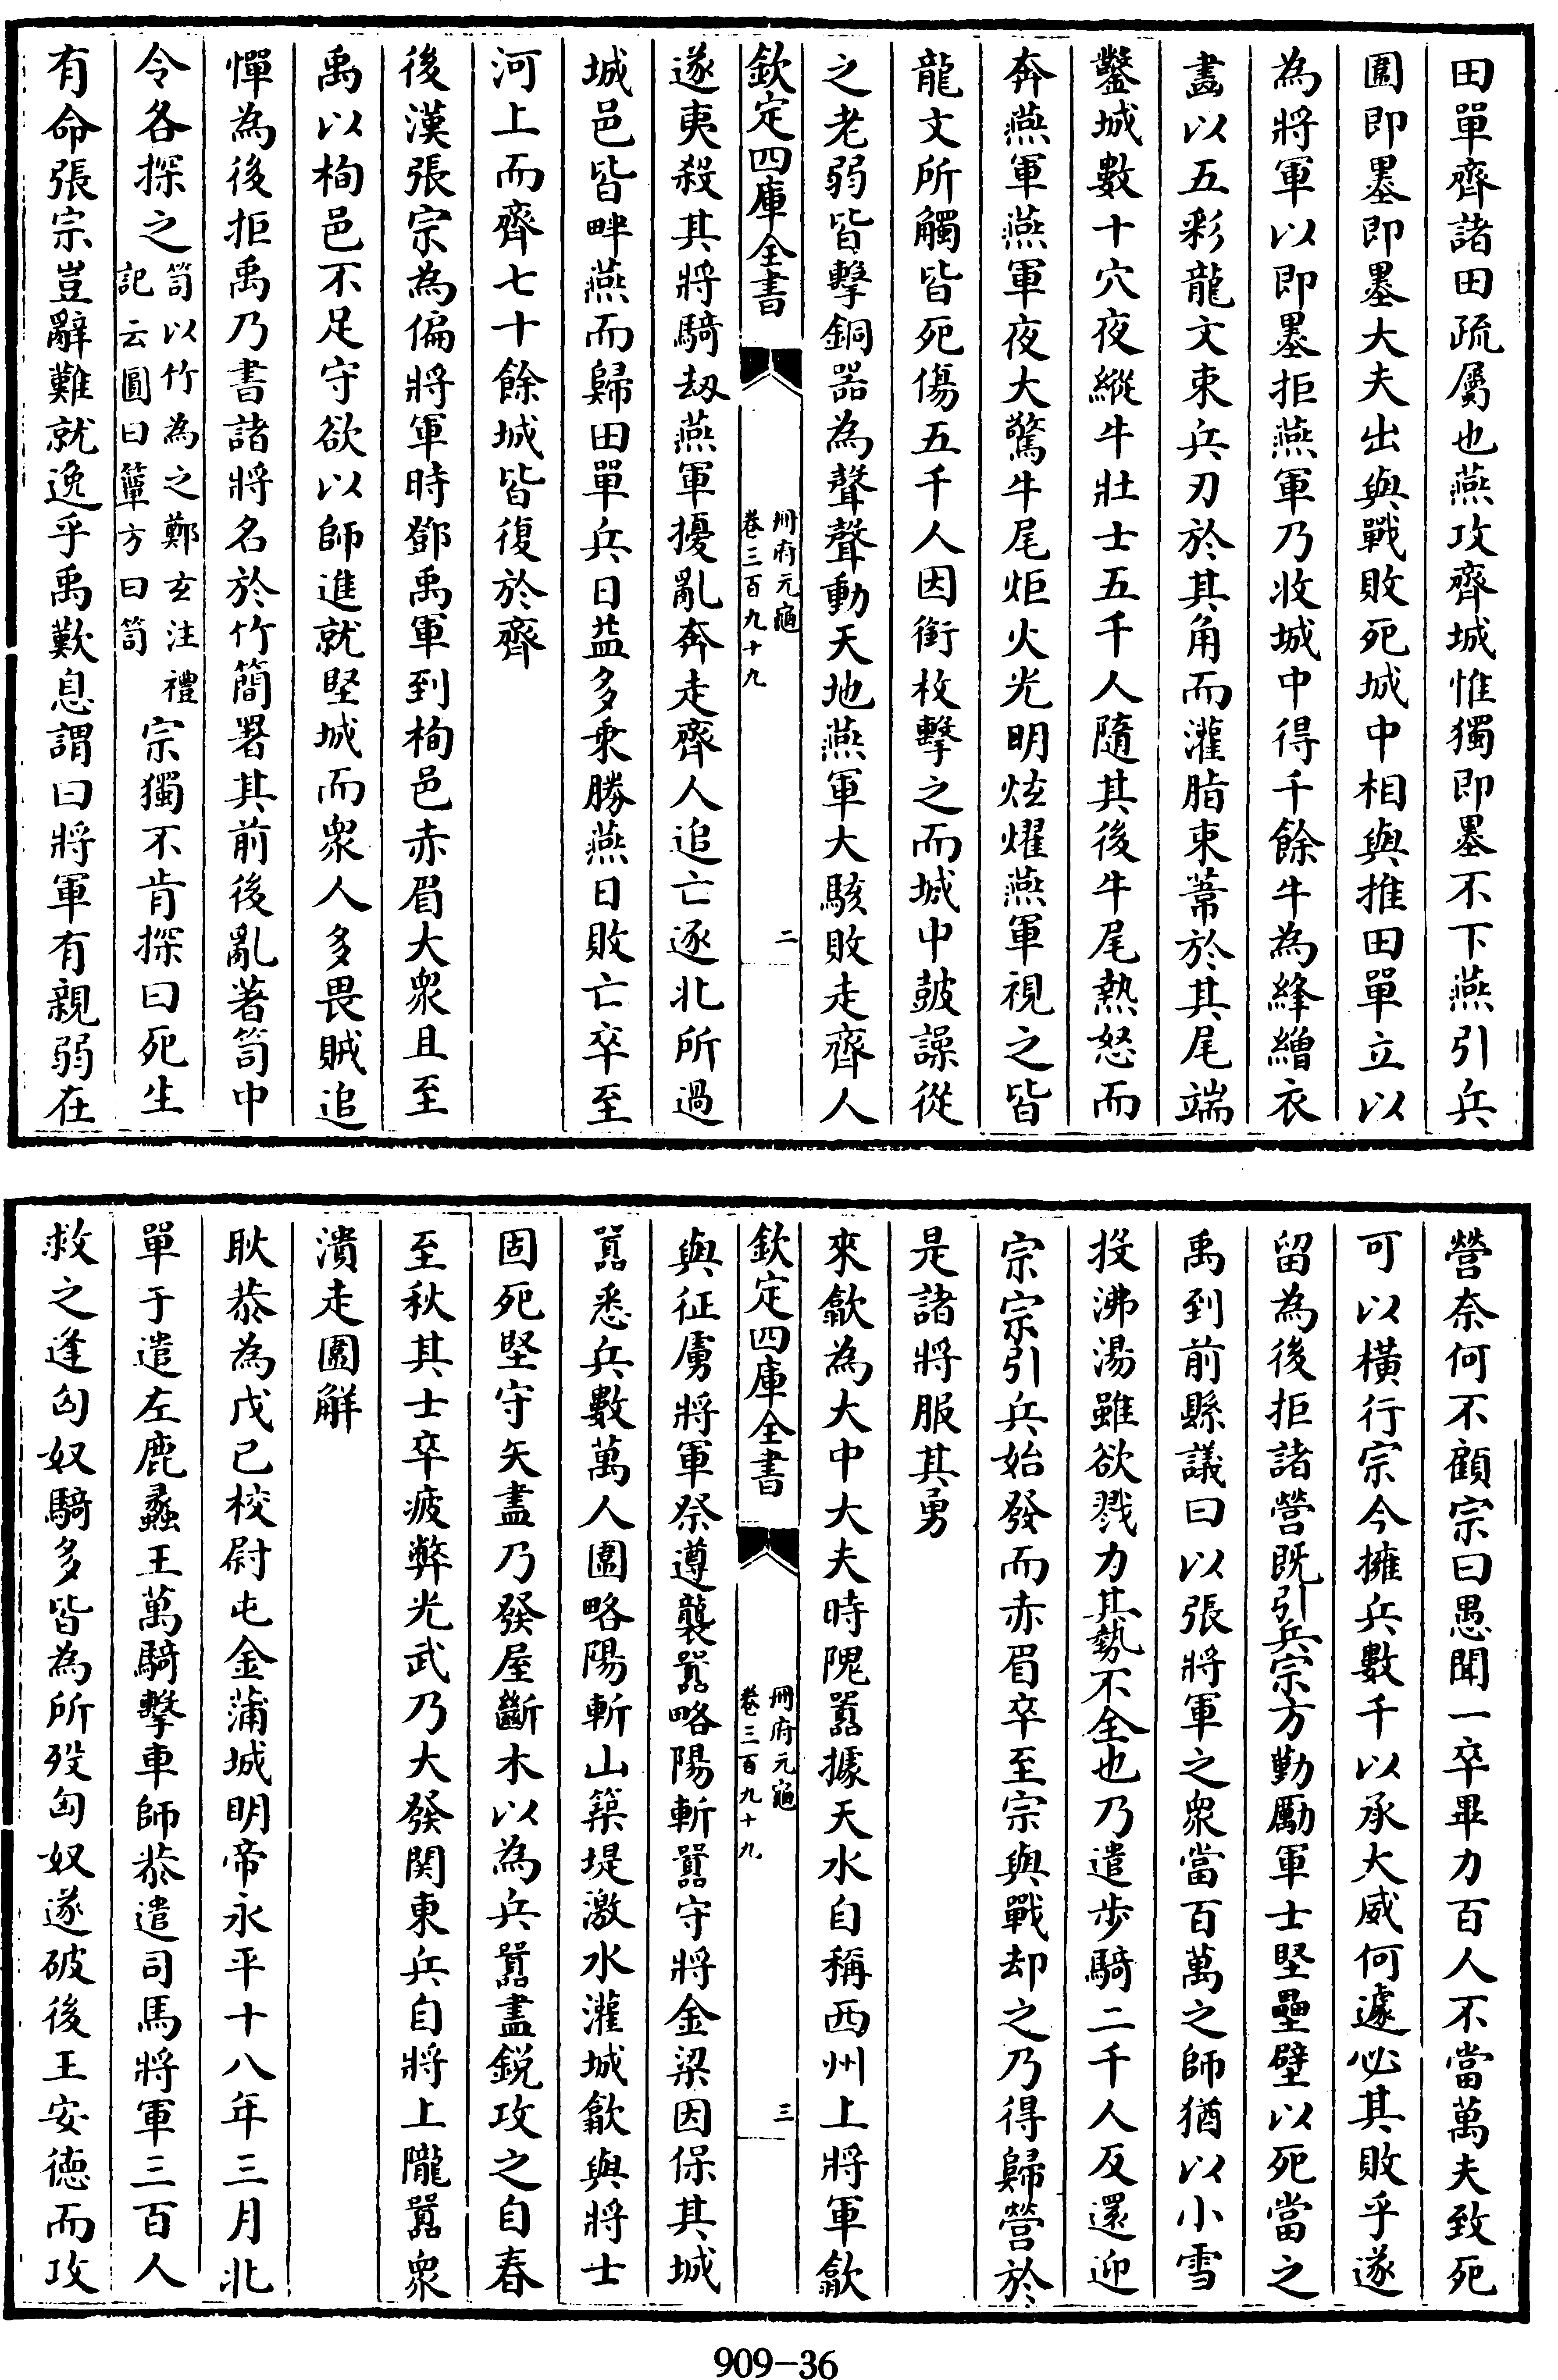 田單齊諸田疏屬也燕攻齊城惟獨即墨不下燕引兵
圍即墨即墨大夫出與戰敗死城中相與推田單立以
為將軍以即墨拒燕軍乃收城中得千餘牛為絳繒衣
畫以五彩龍文束兵刃於其角而灌脂束葦於其尾端
鑿城數十穴夜縱牛壯士五千人隨其後牛尾熱怒而
奔燕軍燕軍夜大驚牛尾炬火光明炫燿燕軍視之皆
龍文所觸皆死傷五千人因銜枚擊之而城中鼓譟從
之老弱皆擊銅器為聲聲動天地燕軍大駭敗走齊人
欽定四庫全書
冊府元龜
卷三百九十九
二
遂夷殺其將騎刼燕軍擾亂奔走齊人追亡逐北所過
城邑皆畔燕而歸田單兵日益多乘勝燕日敗亡卒至
河上而齊七十餘城皆復於齊
後漢張宗為偏將軍時鄧禹軍到栒邑赤眉大衆且至
禹以栒邑不足守欲以師進就堅城而衆人多畏賊追
憚為後拒禹乃書諸將名於竹簡署其前後亂著笥中
令各探之笥以竹為之鄭玄注禮記云圓曰簞方曰笥宗獨不肯探曰死生
有命張宗豈辭難就逸乎禹歎息謂曰將軍有親弱在
營奈何不顧宗曰愚聞一卒畢力百人不當萬夫致死
可以橫行宗今擁兵數千以承大威何遽必其敗乎遂
留為後拒諸營既引兵宗方勤勵軍士堅壘壁以死當之
禹到前縣議曰以張將軍之衆當百萬之師猶以小雪
投沸湯雖欲戮力其勢不全也乃遣步騎二千人反還迎
宗宗引兵始發而赤眉卒至宗與戰却之乃得歸營於
是諸將服其勇
來歙為大中大夫時隗囂據天水自稱西州上將軍歙
欽定四庫全書
冊府元龜
卷三百九十九
三
與征虜將軍祭遵襲囂略陽斬囂守將金梁因保其城
囂悉兵數萬人圍略陽斬山築堤激水灌城歙與將士
固死堅守矢盡乃發屋斷木以為兵囂盡鋭攻之自春
至秋其士卒疲弊光武乃大發関東兵自將上隴囂衆
潰走圍解
耿恭為戊己校尉屯金蒲城明帝永平十八年三月北
單于遣左鹿蠡王萬騎擊車師恭遣司馬將軍三百人
救之逢匈奴騎多皆為所歿匈奴遂破後王安徳而攻
909-36